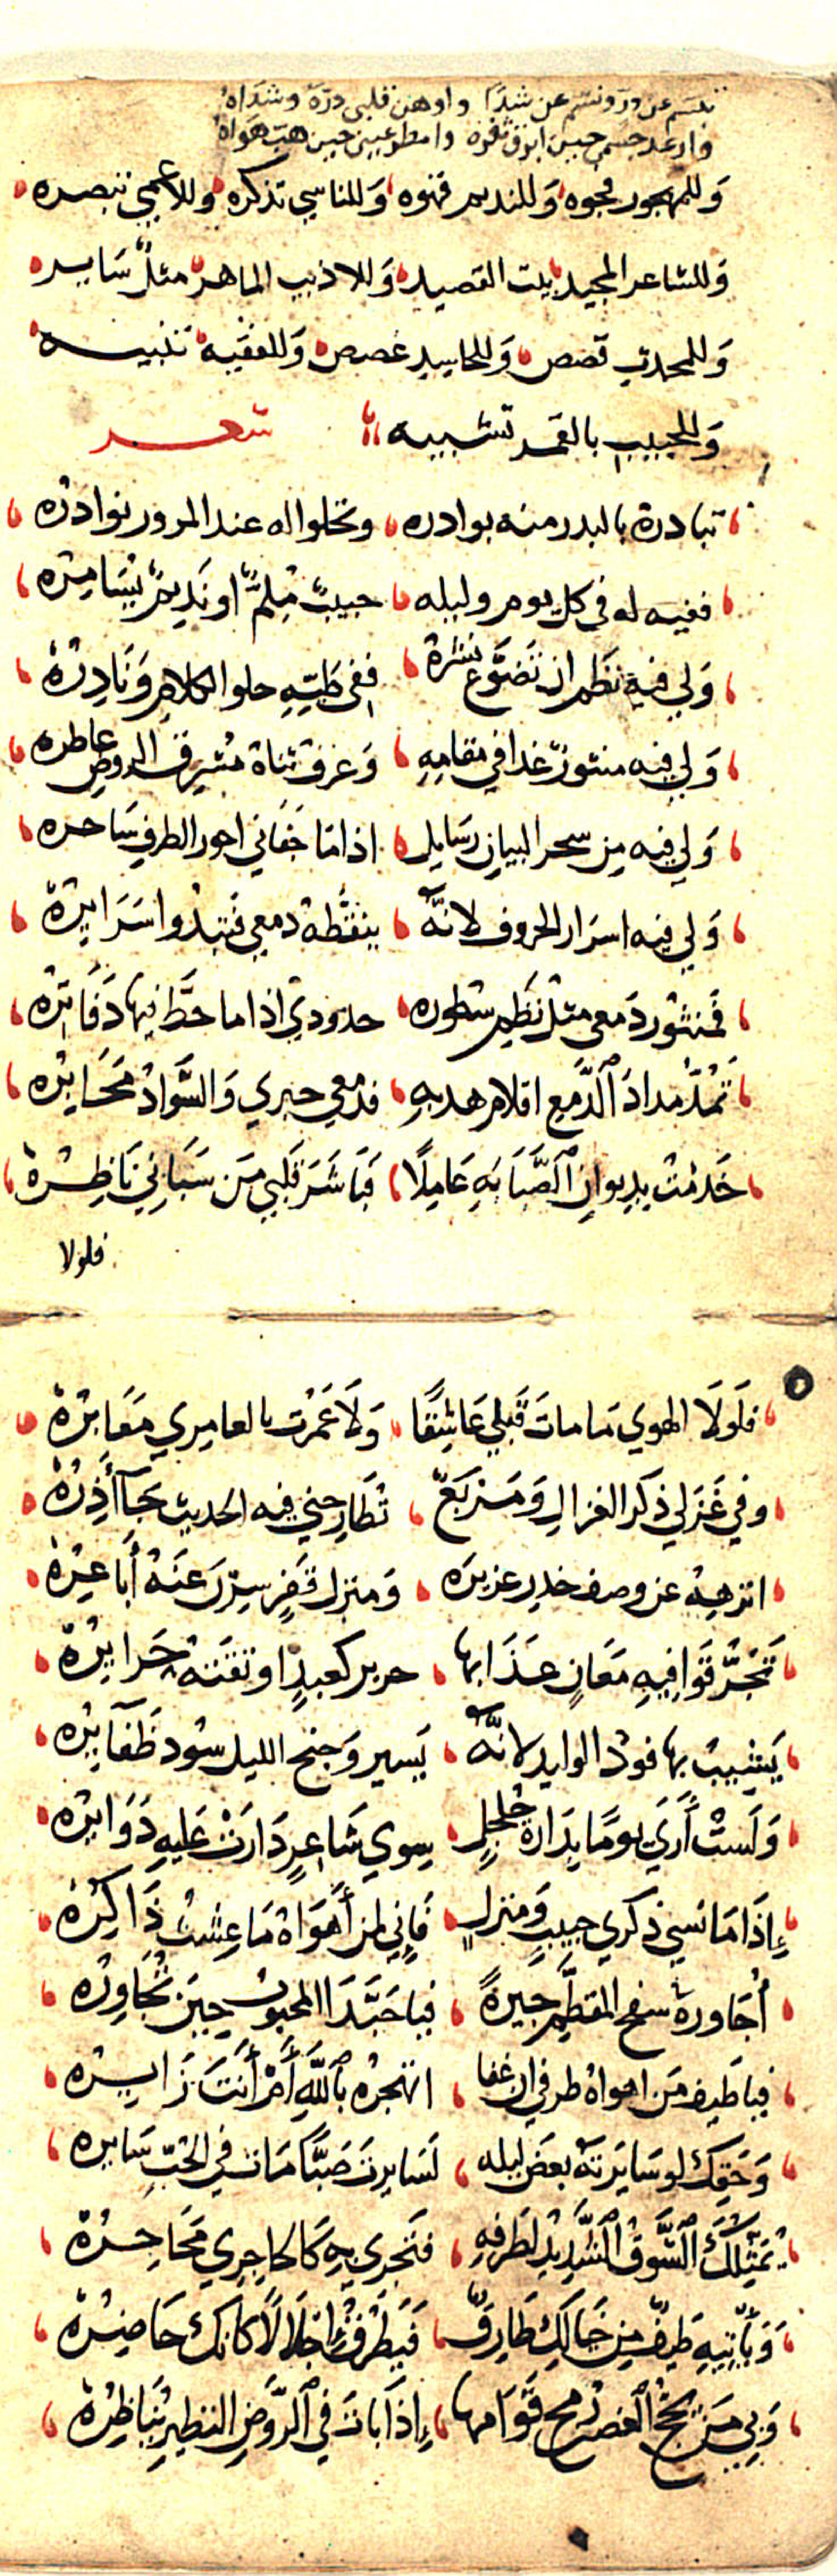 تبسم عن در ونسم عن شذا واوهن قلبي دره وشذاه
وارعد جسمي حين ابرق ثغره وامطر عيني حين هب هواه
وللمهجور فجوه وللنديم قهوه وللناسي تذكره وللاعمي تبصره
وللشاعر المجيد بيت القصيد وللاديب الماهر مثل ساير
وللمحدث قصص وللحاسد غصص وللفقيه تنبيه
وللحبيب بالقمر تشبيه شعر
تبادره بالبدر منه بوادره وتحلوا له عند المرور نوادره
ففيه له في كل يوم وليله حبيب ملم او نديم يسامره
ولي فيه نظم ان تضوع نشره ففي طيه حلو الكلام ونادره
ولي فيه منثور غدا في مقامه وعرف ثناه مشرف الروض عاطره
ولي فيه من سحر البيان رسايل اذا ما جفاني احور الطرف ساحره
ولي فيه اسرار الحروف لانه ينقطه دمعي فتبدوا سرايره
فمنثور دمعي مثل نظم سطوره خدودي اذا ما خط فيها دفاتره
تمد مداد الدمع اقلام هدبه فدمعي حبري والسواد محابره
خدمت بديوان الصبابه عاملا فباشر قلبي من سباني ناظره
فلولا
فلولا الهوي ما مات قبلي عاشقا ولا عمرت بالعامري مقابره
وفي غزلي ذكر الغزال ومربع تطارحني فيه الحديث جآذره
انزهه عن وصف خدر عزيزه ومنزل قفر سرن عنه اباعره
تجر قوافيه معان عذابها جرير كعبد اوثقته جرايره
يشيب بها فود الوليد لانه يسير وجنح الليل سود ظفايره
ولست اري يوما بدارة جلجل سوي شاعر دارت عليه دوايره
إذا ما نسي ذكري حبيب ومنزل فإني لمن أهواه ما عشت ذاكره
أجاوره سفح المقطم جيرة فيا حبذا المحبوب حين تجاوره
فيا طيف من اهواه طرفي ان غفا اتهجره بالله أم أنت زايره
وحقك لو سايرته بعض ليله لسايرت صبا مات في الحب سايره
يمثلك الشوق الشديد لطرفه فتجري به كالحاجري محاجره
ويأتيه طيف من خيالك طارق فيطرق إجلالا كانك حاضره
وبي من يحج الغصن رمح قوامها إذا بات في الروض النظير يناظره